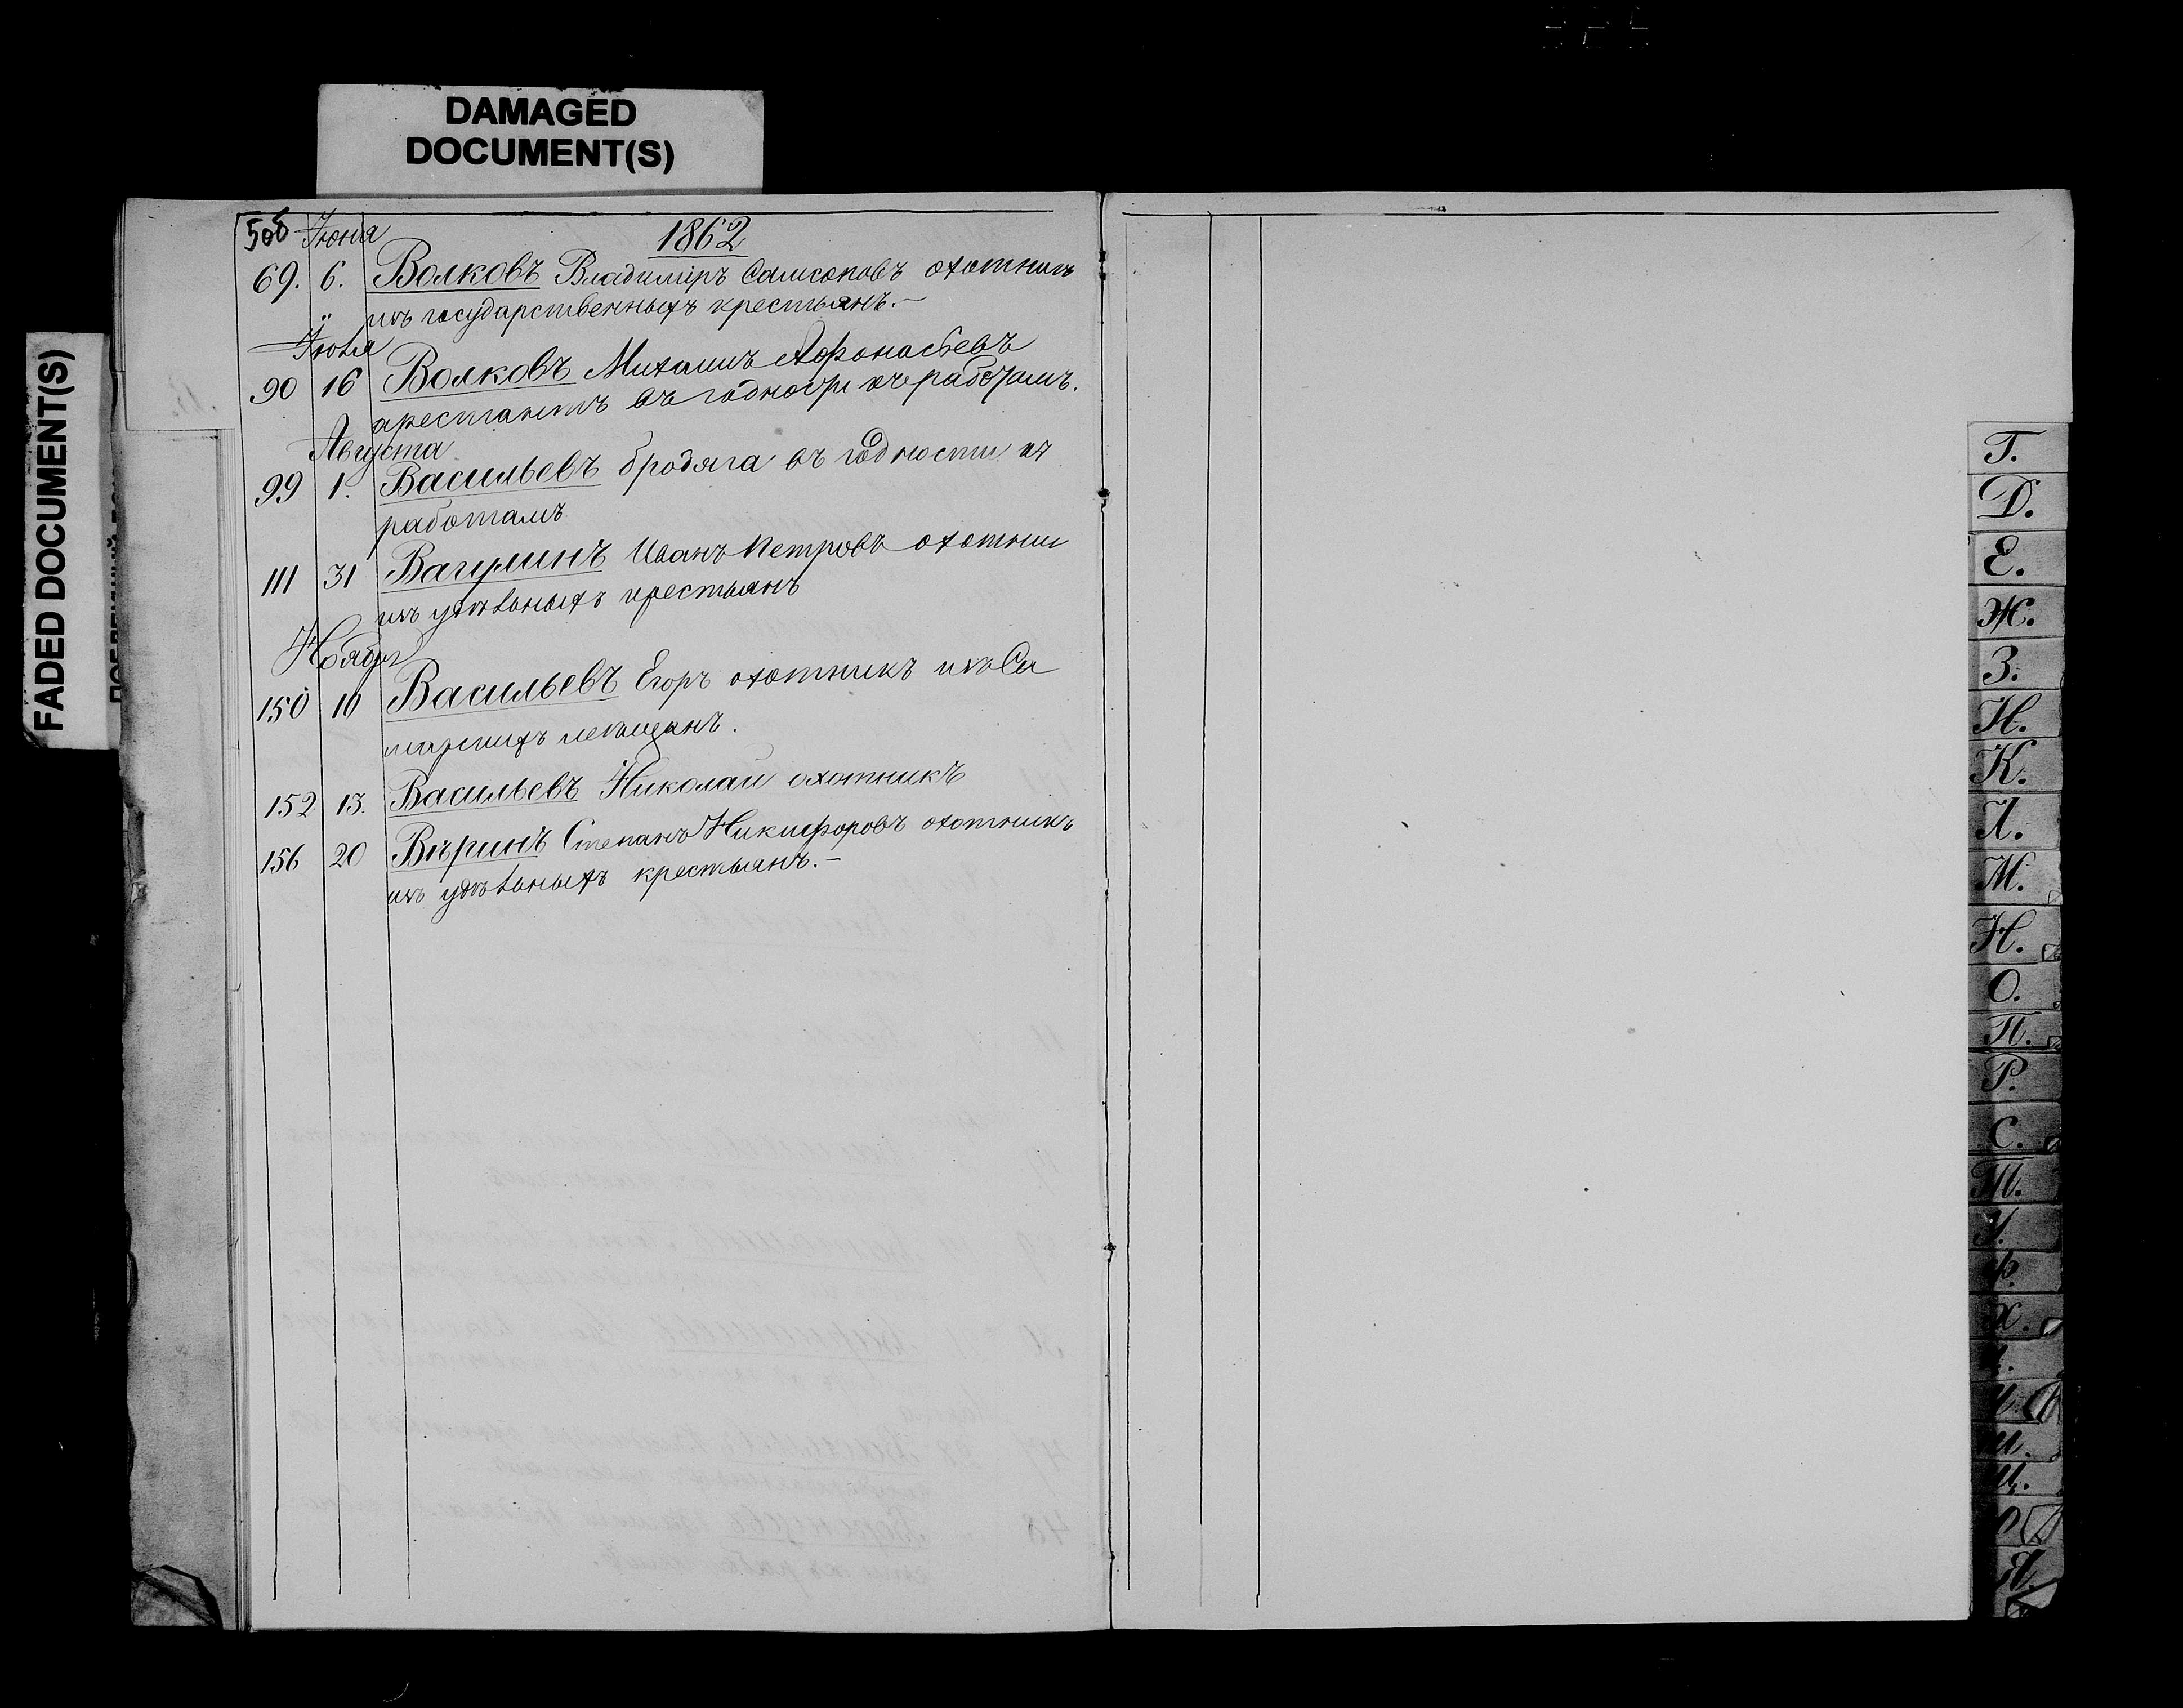 DAMAGED
DOCUMENT(S)
FADED DOCUMENT(S)
506 Июня 1862
69. 6. Волковъ Владимiръ Самсоновъ охотникъ
изъ государственныхъ крестьянъ.—
Iюля
90 16 Волковъ Михаилъ Афонасьевъ
арестантъ въ годности къ работамъ.
Августа
99 1. Васильевъ бродяга въ годности къ
работамъ
111 31 Вагулинъ Иванъ Петровъ охотник
изъ удѣльныхъ крестьянъ
Ноября
150 10 Васильевъ Егоръ охотникъ изъ Са
марскихъ мещанъ.
152 13. Васильевъ Николай охотникъ
156 20 Вѣринъ Степанъ Никифоровъ охотникъ
изъ удѣльныхъ крестьянъ.—
Г.
Д.
Е.
Ж.
З.
И.
К.
Л.
М.
Н.
О.
П.
Р.
С.
Т.
У.
Ф.
Х.
Ш.
Щ.
Я.